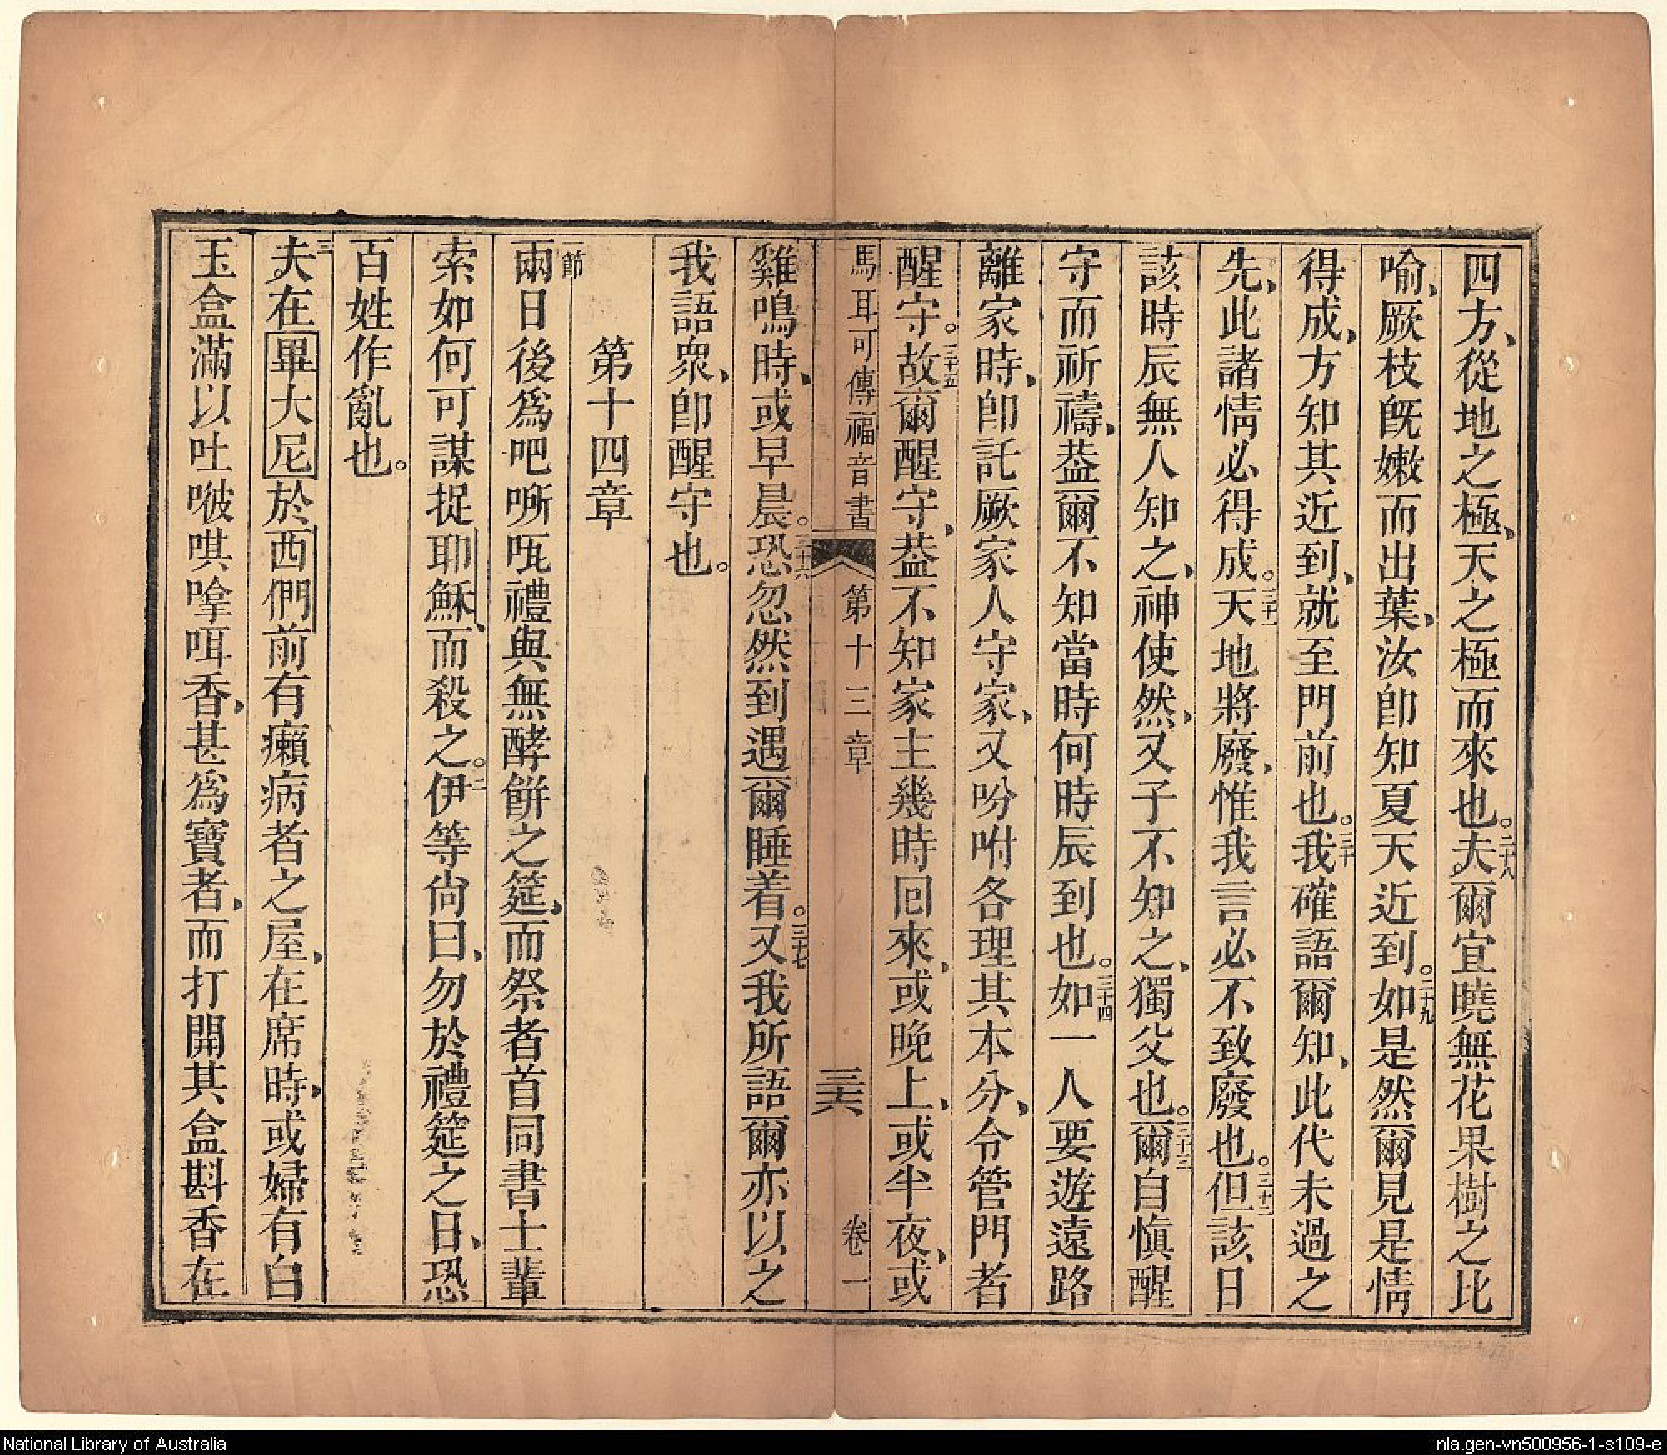 四方、從地之極、天之極而來也。二十八夫爾宜曉無花果樹之比
喻、厥枝旣嫩而出葉、汝卽知夏天近到。二十九如是然爾見是情
得成、方知其近到、就至門前也。三十我確語爾知、此代未過之
先、此諸情必得成。三十一天地將廢、惟我言必不致廢也。三十二但該日
該時辰無人知之、神使然、又子不知之、獨父也。三十三爾自愼醒
守而祈禱、葢爾不知當時何時辰到也。三十四如一人要遊遠路
離家時、卽託厥家人守家、又吩咐各理其本分、令管門者
醒守。三十五故爾醒守、葢不知家主幾時回來、或晚上、或半夜、或
馬耳可傳福音書 第十三章 三六 卷一
雞鳴時、或早晨。三十六恐忽然到遇爾睡着。三十七又我所語爾亦以之
我語衆、卽醒守也。
第十四章
一節兩日後爲吧㗭𠵽禮與無酵餅之筵、而祭者首同書士輩
索如何可謀捉耶穌、而殺之。二伊等尙曰、勿於禮筵之日、恐
百姓作亂也。
三夫在畢大尼於西們前有癩病者之屋、在席時、或婦有白
玉盒滿以吐㗑唭嗱咡香、甚爲寶者、而打開其盒斟香在
National Library of Australia
nla.gen-vn500956-1-s109-e